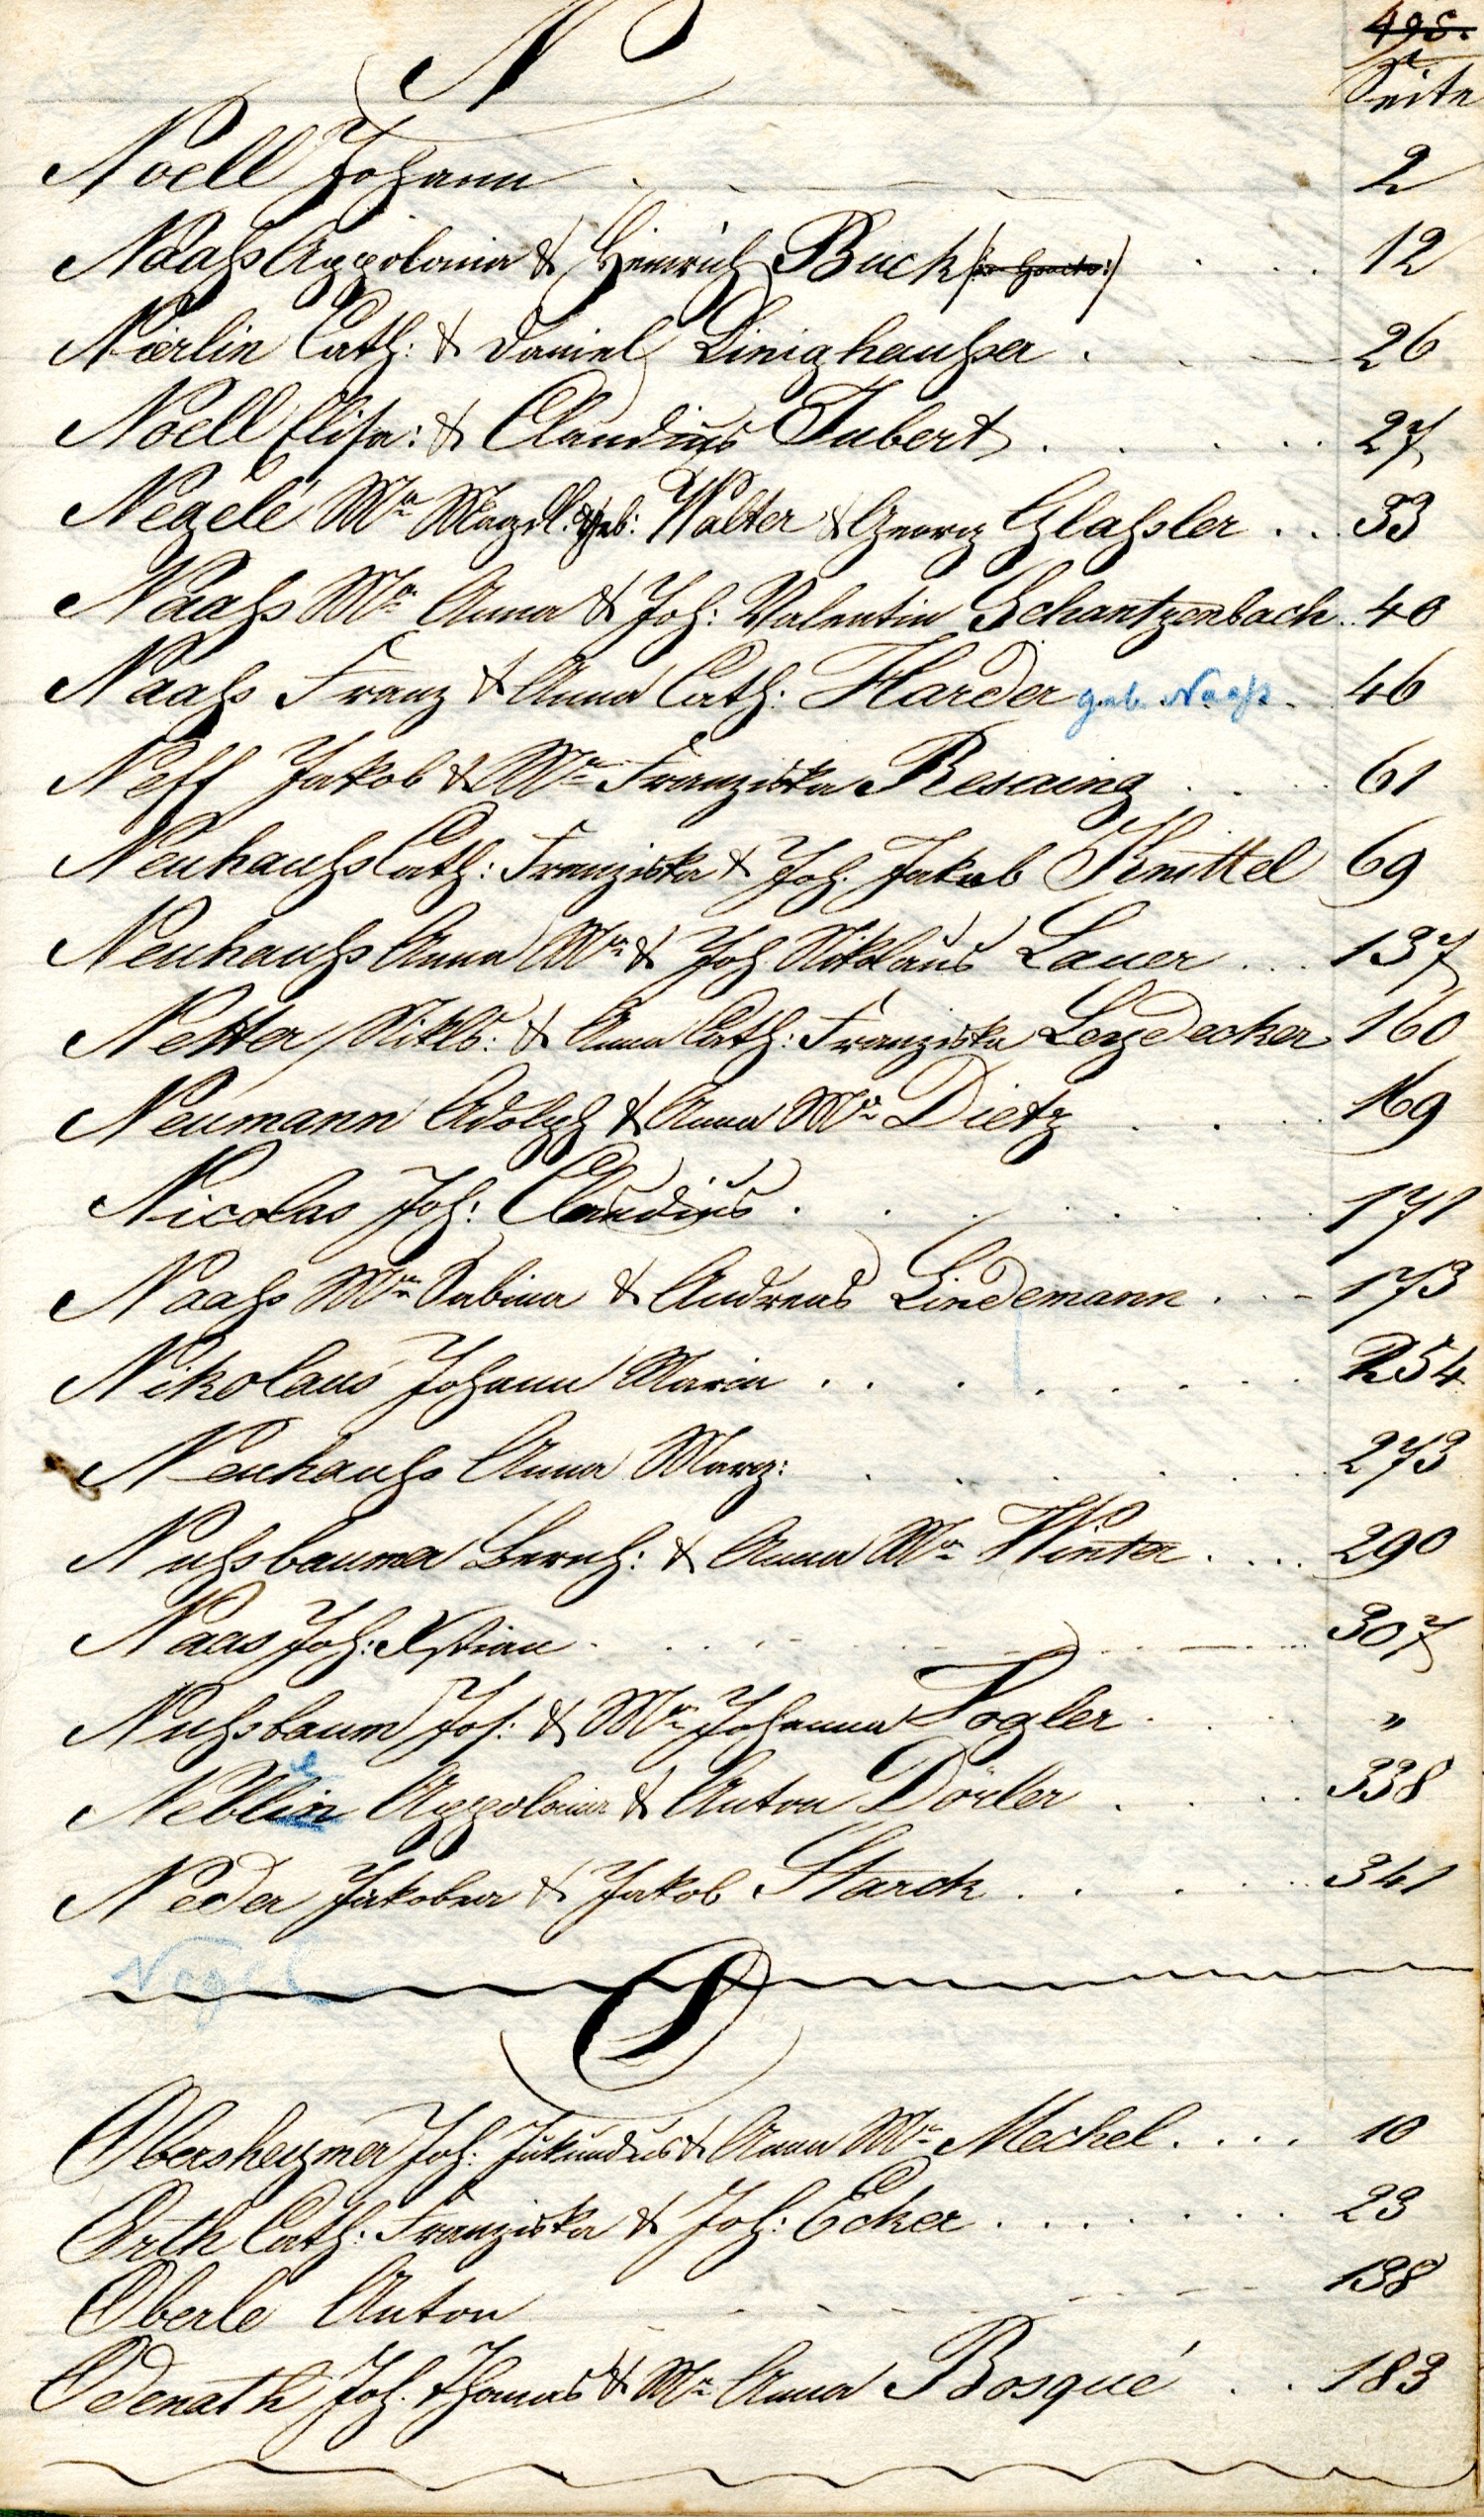 N
498.
Seite
Noell Johann 2
Naaß Appolonia & Heinrich Buck 12
Nærlin Cath: & Daniel Linighaußer . . 26
Noell Elisa: & Claudius Jubert . . . . . 27
Negele Mª Magdl. geb: Walter & Georg Glaßler . . 33
Naaß Mª Anna & Joh: Valentin Schantzenbach . 40
Naaß Franz & Anna Cath: Harder geb. Naaß . 46
Neff Jakob & Mª Franziska Resaing . . . 61
Neuhauß Cath: Franziska & Joh. Jakob Knittel 69
Neuhauß Anna Mª & Joh Nikolaus Lauer . . . 137
Netter Nikls: & Anna Cath: Franziska Leydecker 160
Neumann Adolph & Anna Mª Dietz . . . 169
Nicolas Joh: Claudius . . . . . . 171
Naaß Mª Sabina & Andreas Lindemann . . . 173
Nikolaus Johann Maria . . . . . . . 254
Neuhauß Anna Marg: . . . . . . 273
Nußbaumer Bernh: & Anna Mª Winter . . . . 290
Naas Joh: Xstian . . . . . . . 307
Nußbaum Jos: & Mª Johanna Vogler . . . "
Neblin Appolonia & Anton Dörler . . . . 338
Neder Jakobea & Jakob Starck . . . . . 341
Nagel
O
Obersheymer Joh: Jukundus & Anna Mª Meckel . . . . 10
Orth Cath: Franziska & Joh: Ecker . . . . . . . 23
Oberle Anton 138
Odenath Joh. Thomas & Mª Anna Bosqué . . 183